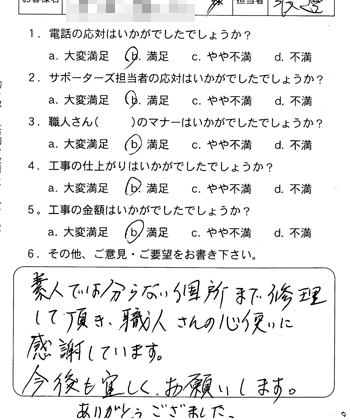 担当者
1. 電話の応対はいかがでしたでしょうか?
a. 大変満足 b. 満足 c. やや不満 d. 不満
2. サポーターズ担当者の応対はいかがでしたでしょうか?
a. 大変満足 b. 満足 c. やや不満 d. 不満
3. 職人さん( )のマナーはいかがでしたでしょうか?
a. 大変満足 b 満足 c. やや不満 d. 不満
4. 工事の仕上がりはいかがでしたでしょうか?
a. 大変満足 b. 満足 c. やや不満 d. 不満
5。工事の金額はいかがでしたでしょうか?
a. 大変満足 b 満足 c. やや不満 d. 不満
6. その他、ご意見・ご要望をお書き下さい。
素人では分らない個所まで修理
して頂き、職人さんの心使いに
感謝しています。
今後も宜しくお願いします。
ありがとうございました。